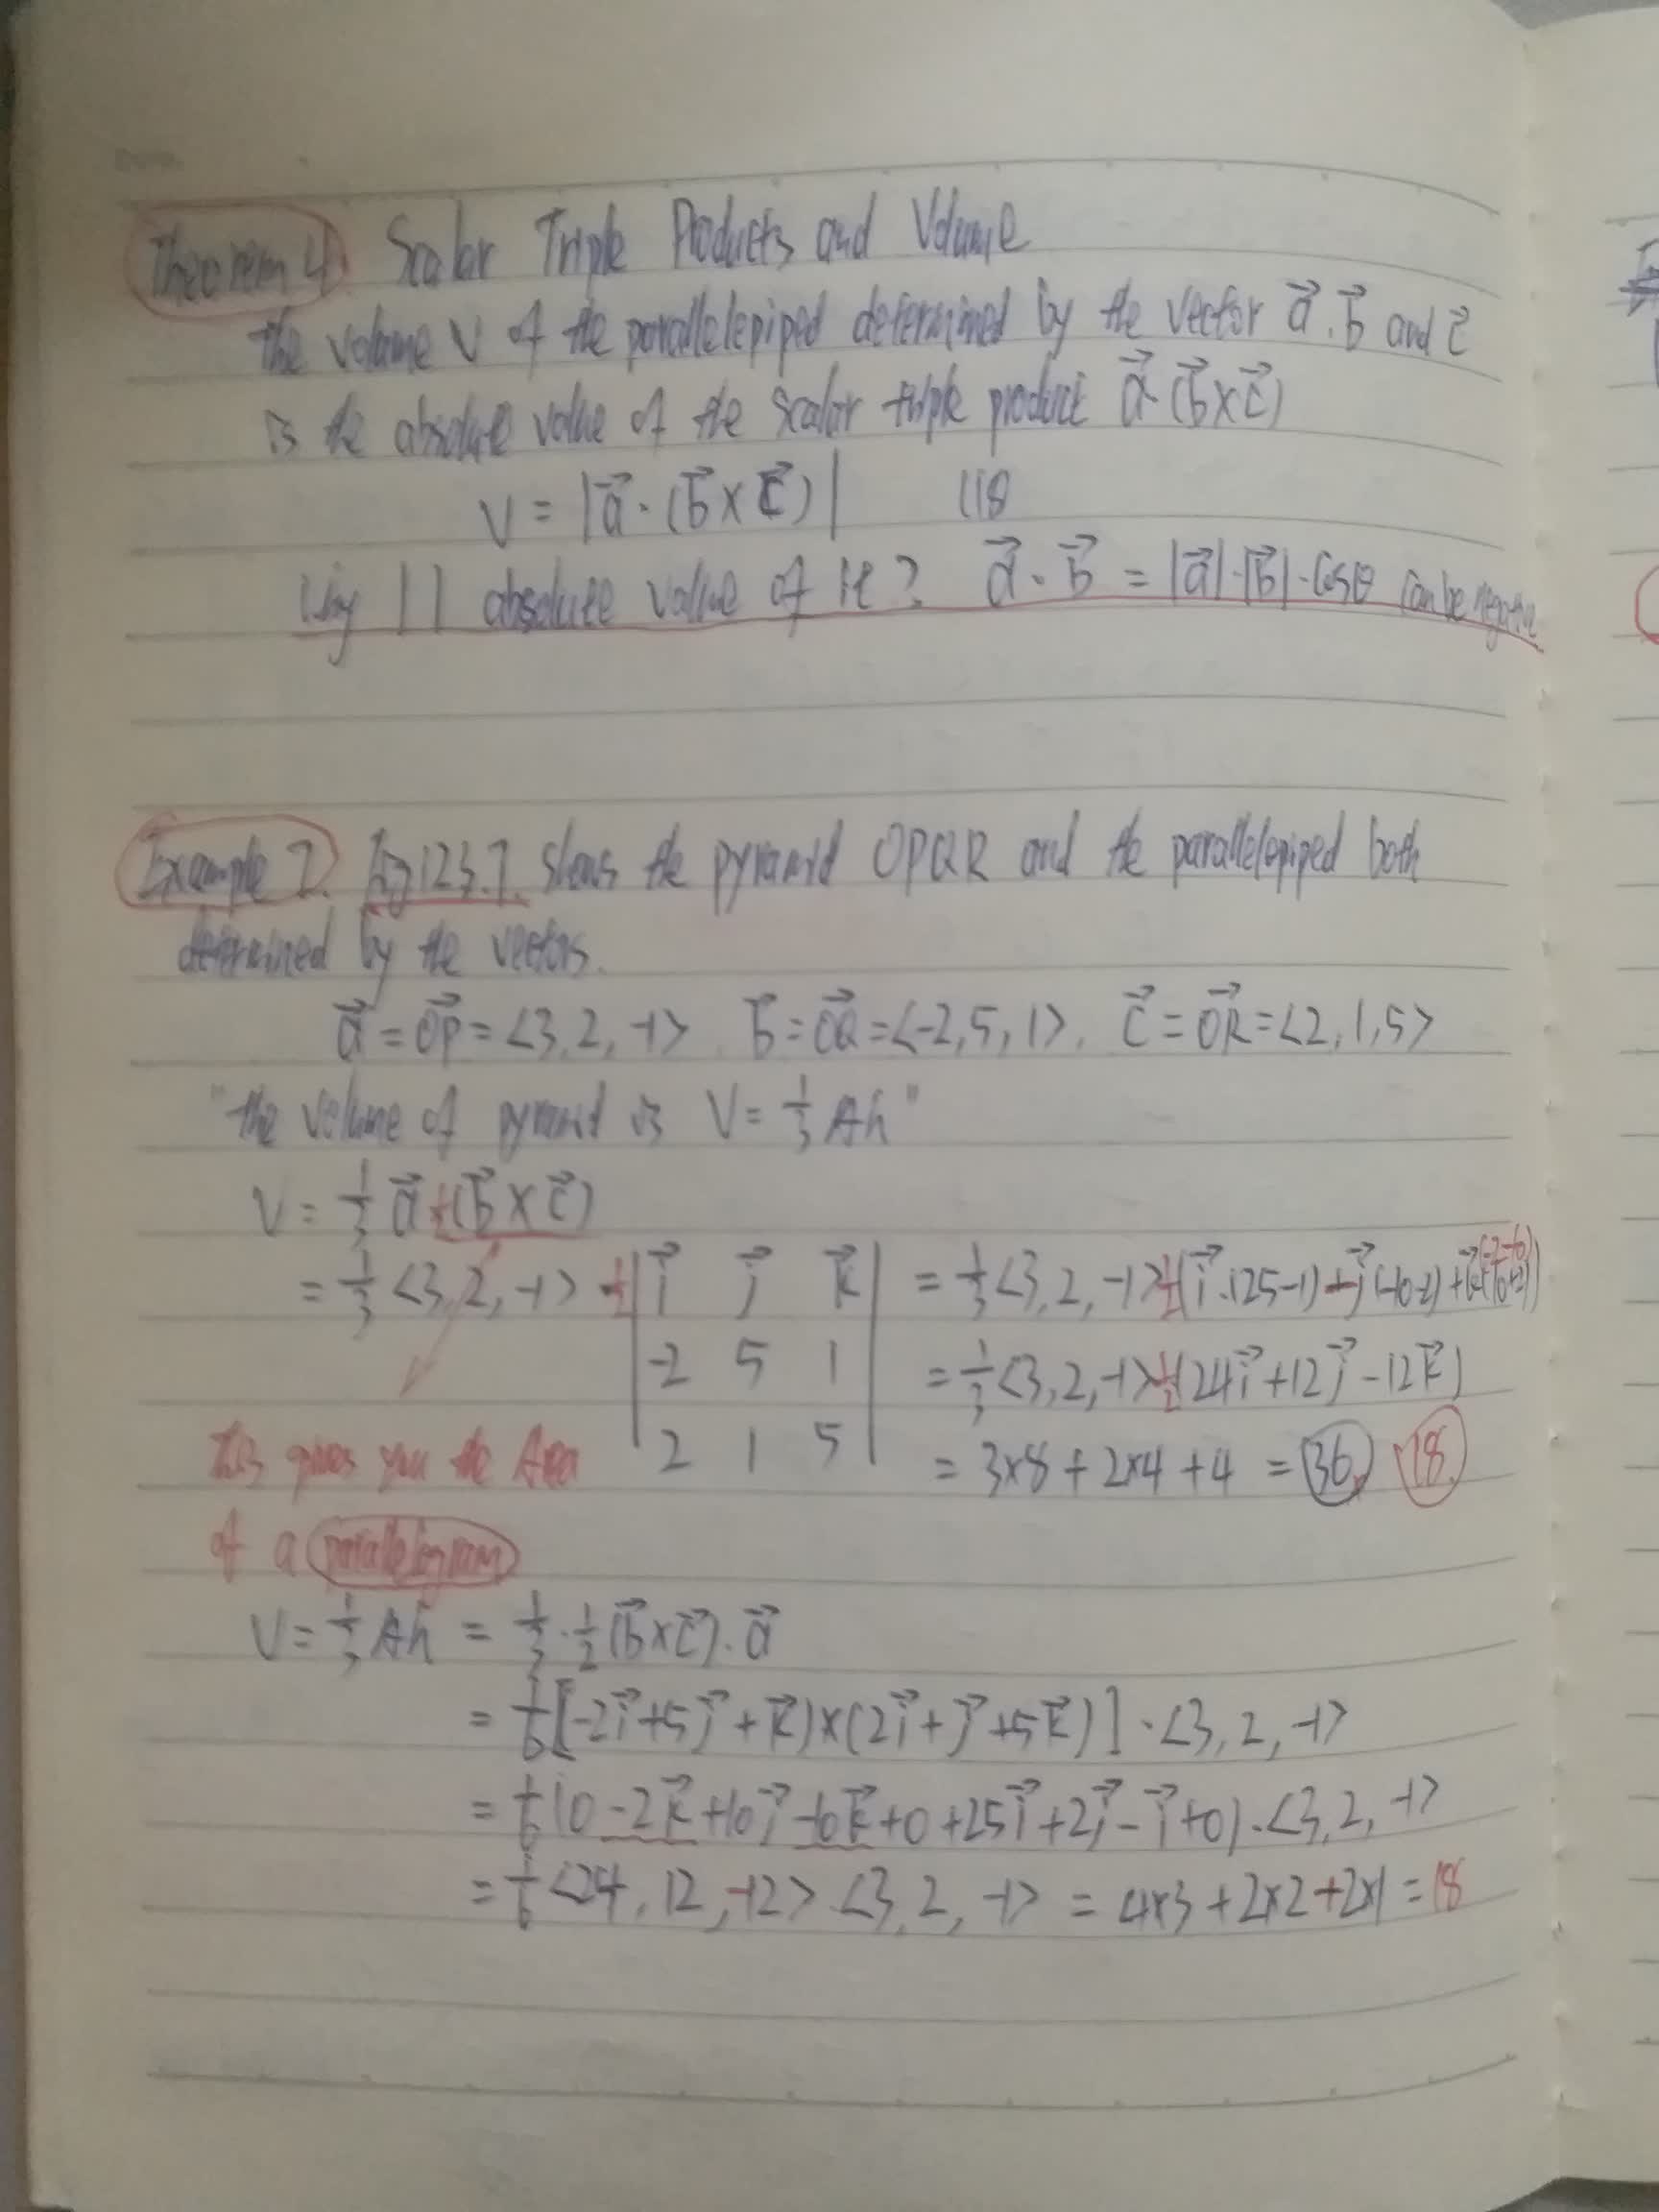 Theorem 4 Scalar Triple Products and Volume
the volume V of the parallelepiped determined by the vector a⃗. b⃗ and c⃗
is the absolute value of the scalar triple product a⃗·(b⃗×c⃗)
V = |a⃗·(b⃗×c⃗)| (18
Why | | absolute value of it? a⃗·b⃗ = |a⃗|·|b⃗|·cosθ can be negative
Example 7. Fig 12.3.7. shows the pyramid OPQR and the parallelepiped both
determined by the vectors.
a⃗ = OP⃗ = <3, 2, -1> b⃗ = OQ⃗ = <-2, 5, 1>. c⃗ = OR⃗ = <2, 1, 5>
"the volume of pyramid is V = 1/3 Ah"
V = 1/3 a⃗ (b⃗×c⃗)
= 1/3 <3, 2, -1> · 1/2 | i⃗ j⃗ k⃗ | = 1/3 <3, 2, -1> · 1/2 (i⃗·(25-1) - j⃗(-10-2) + k⃗(-2-10))
-2 5 1 = 1/3 <3, 2, -1> · 1/2 (24i⃗ + 12j⃗ - 12k⃗)
2 1 5 = 3×8 + 2×4 + 4 = 36. 18
This gives you the Area
of a parallelogram
V = 1/3 Ah = 1/3 · 1/2 (b⃗×c⃗)·a⃗
= 1/6 [-2i⃗+5j⃗+k⃗)×(2i⃗+j⃗+5k⃗)]·<3, 2, -1>
= 1/6 (0 -2k⃗ +10j⃗ -10k⃗ +0 +25i⃗ +2j⃗ - i⃗ +0)·<3, 2, -1>
= 1/6 <24, 12, -12> <3, 2, -1> = 4×3 + 2×2 + 2×1 = 18